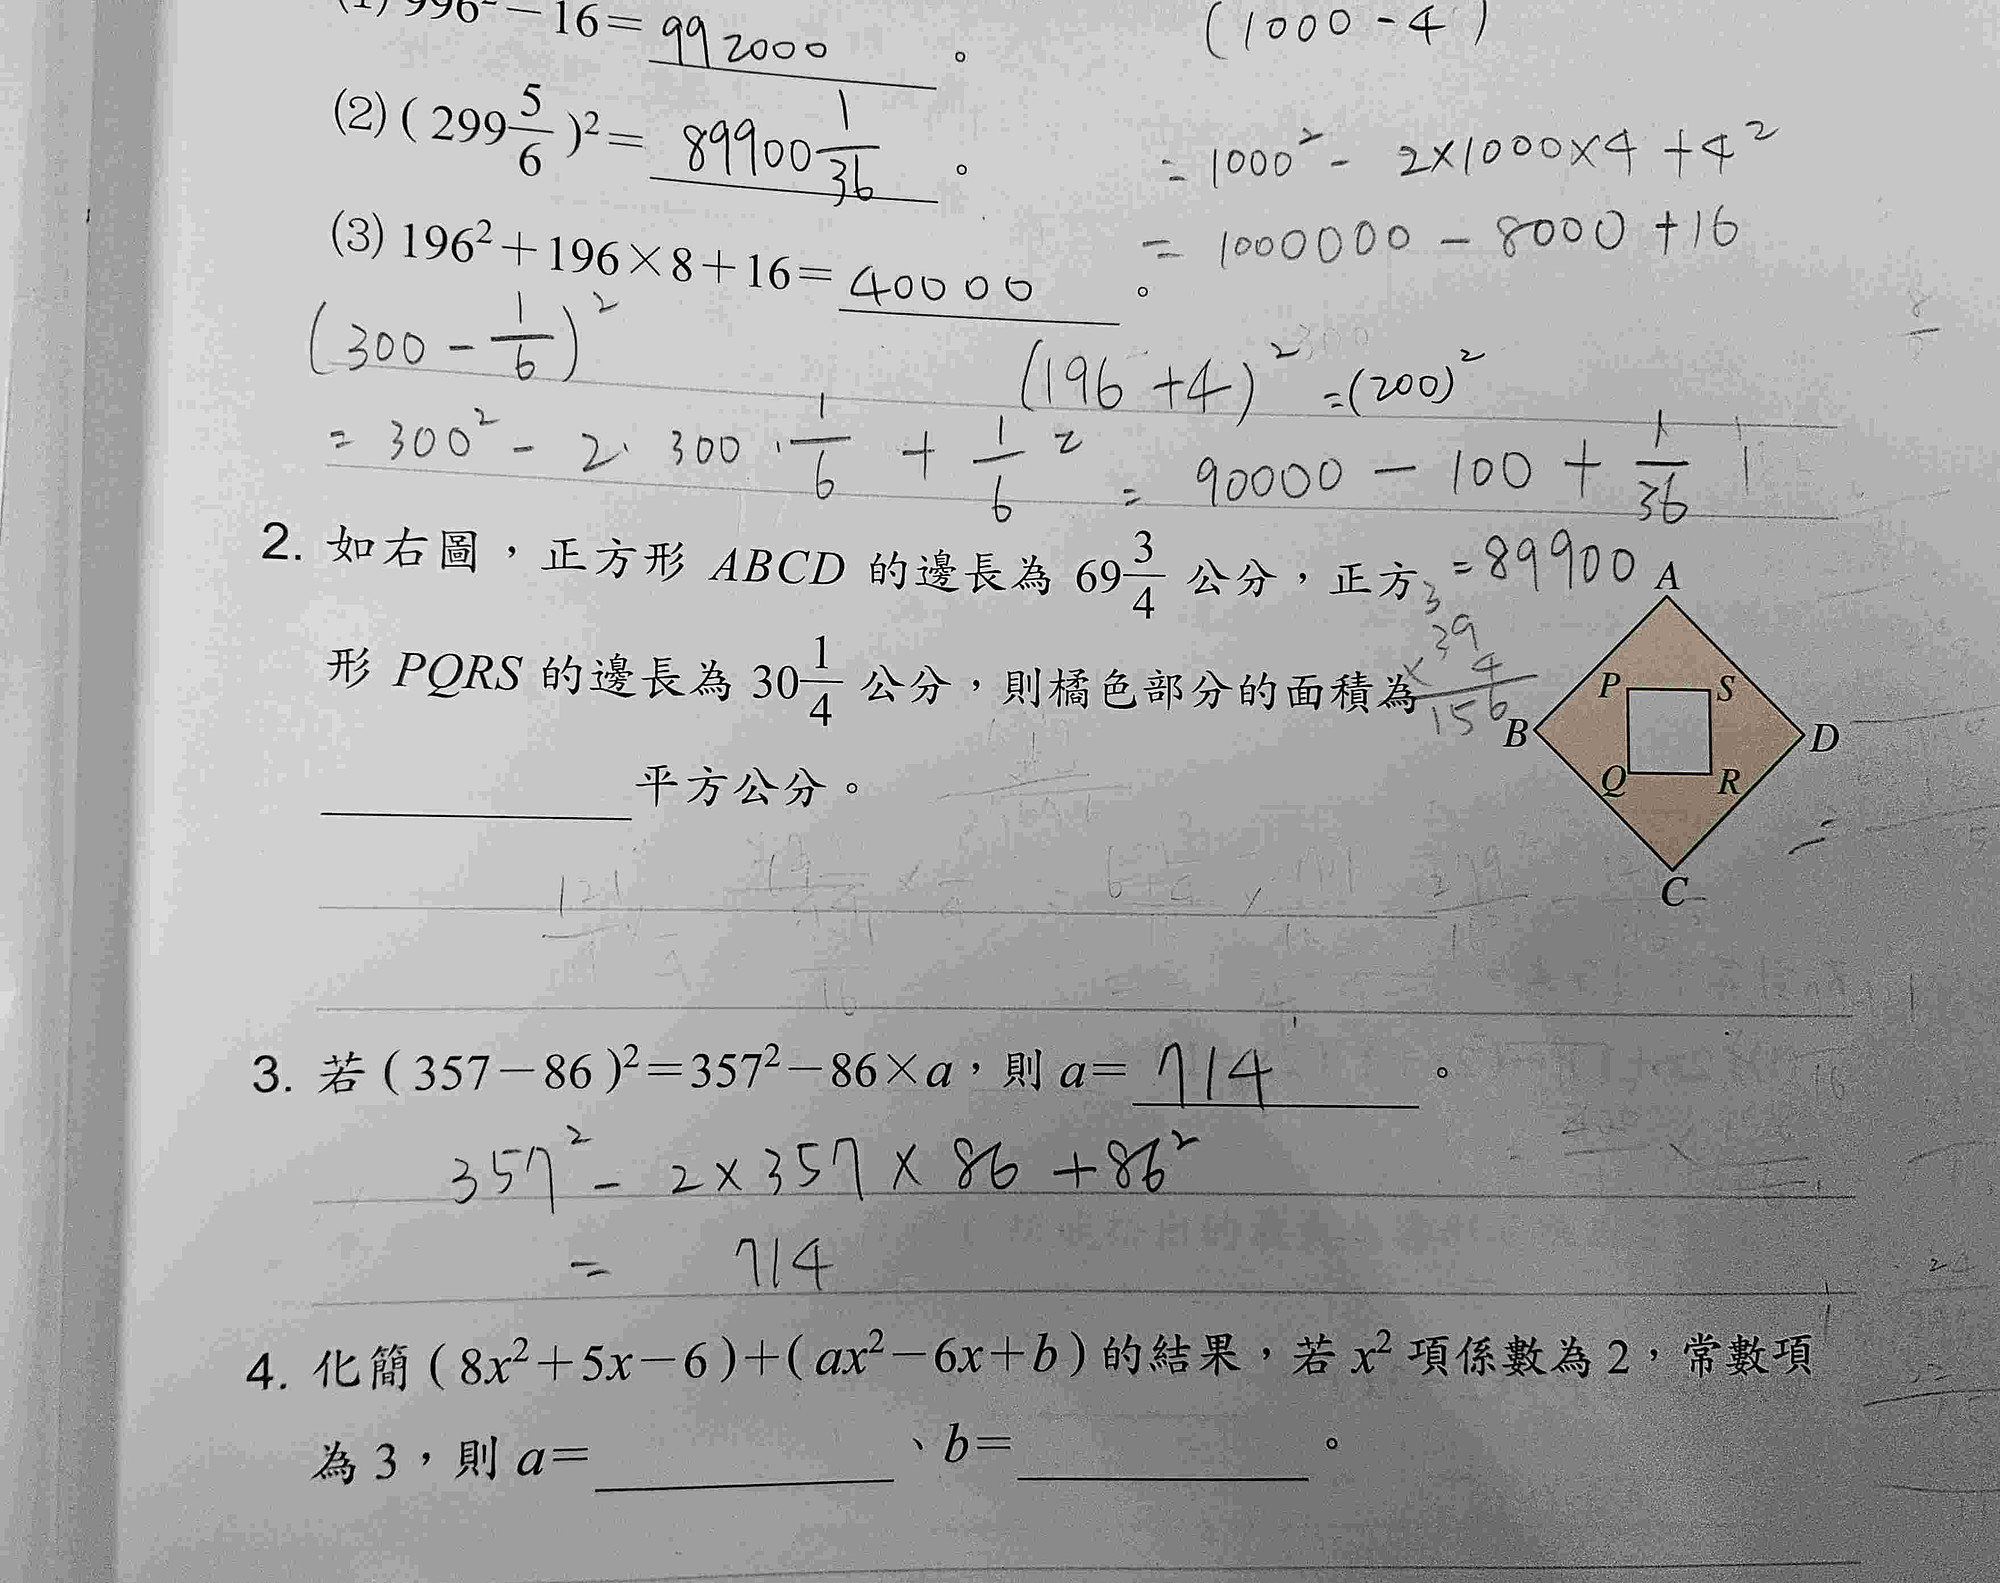 (1) 996² − 16 = 992000 。
(1000 - 4)
(2) ( 299 5/6 )² = 89900 1/36 。
= 1000² - 2×1000×4 + 4²
(3) 196² + 196 × 8 + 16 = 40000 。
= 1000000 - 8000 + 16
(300 - 1/6)²
(196 + 4)² = (200)²
= 300² - 2 · 300 · 1/6 + 1/6 ² = 90000 - 100 + 1/36
= 89900
2. 如右圖，正方形 ABCD 的邊長為 69 3/4 公分，正方
形 PQRS 的邊長為 30 1/4 公分，則橘色部分的面積為
平方公分。
3
39
× 4
156
A
P S
B D
Q R
C
=
3. 若 ( 357 − 86 )² = 357² − 86 × a，則 a = 714 。
357² - 2×357×86 + 86²
= 714
4. 化簡 ( 8x² + 5x − 6 ) + ( ax² − 6x + b ) 的結果，若 x² 項係數為 2，常數項
為 3，則 a = 、b = 。